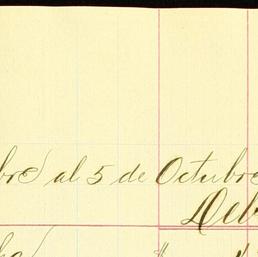 bre al 5 de Octubre
Deb
$